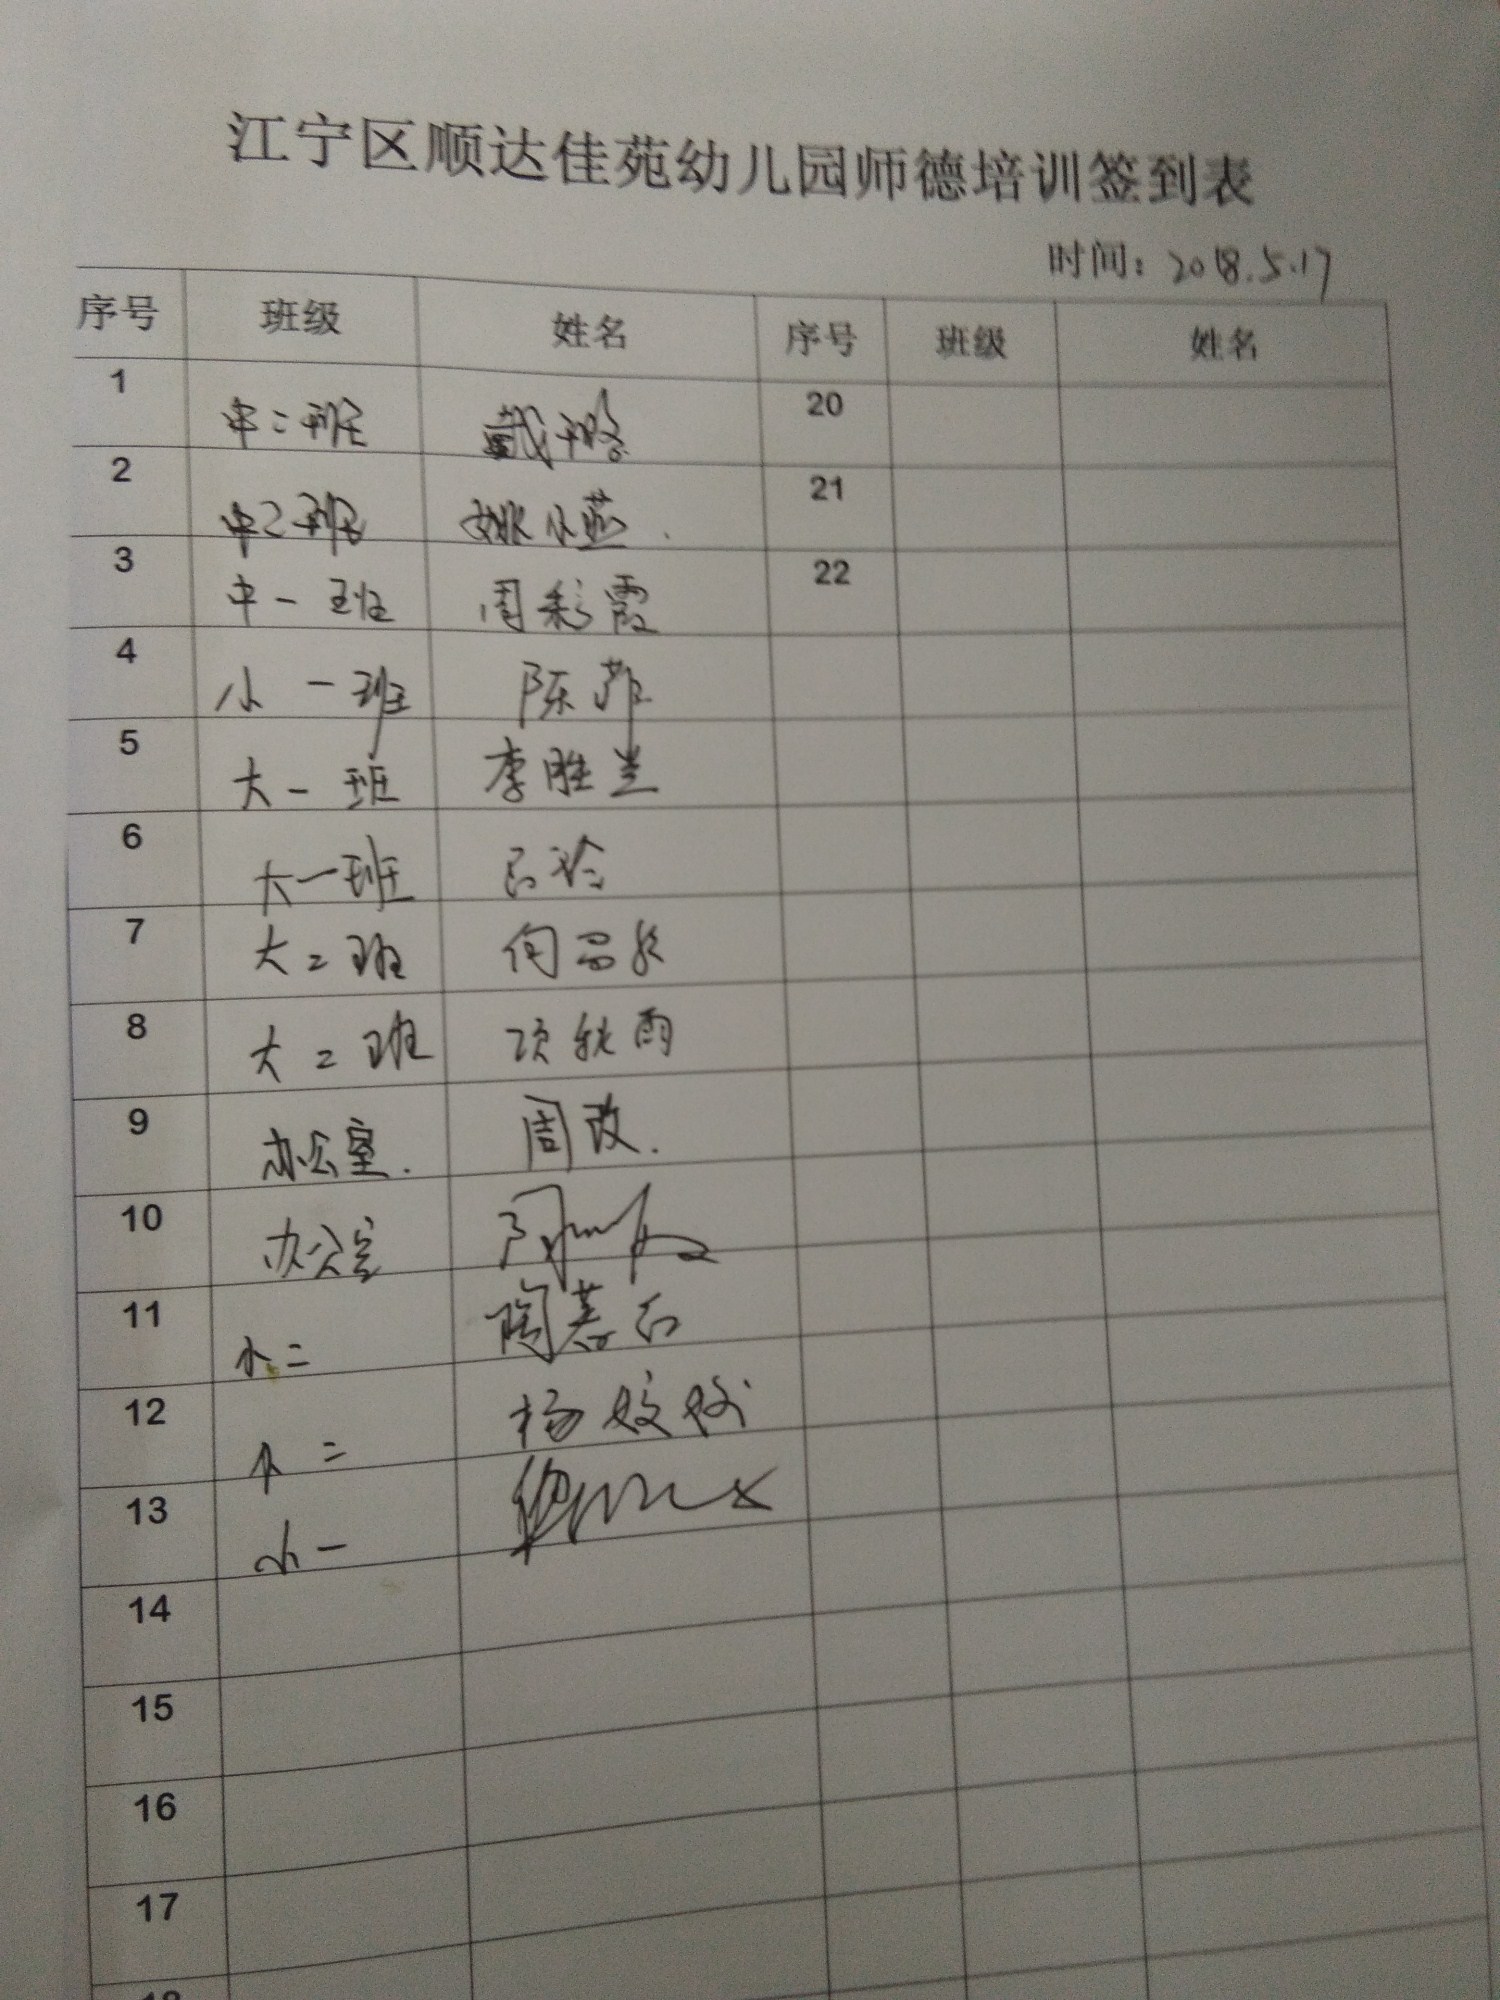 江宁区顺达佳苑幼儿园师德培训签到表
时间：2018.5.17
序号 班级 姓名 序号 班级 姓名
1 中二班 戴璐 20
2 中二班 姚小燕 21
3 中一班 周彩霞 22
4 小一班 陈
5 大一班 李胜兰
6 大一班 吕玲
7 大二班
8 大二班 项秋雨
9 办公室. 周玫.
10 办公室
11 小二 陶慕石
12 小二 杨姣姣
13 小一
14
15
16
17
18